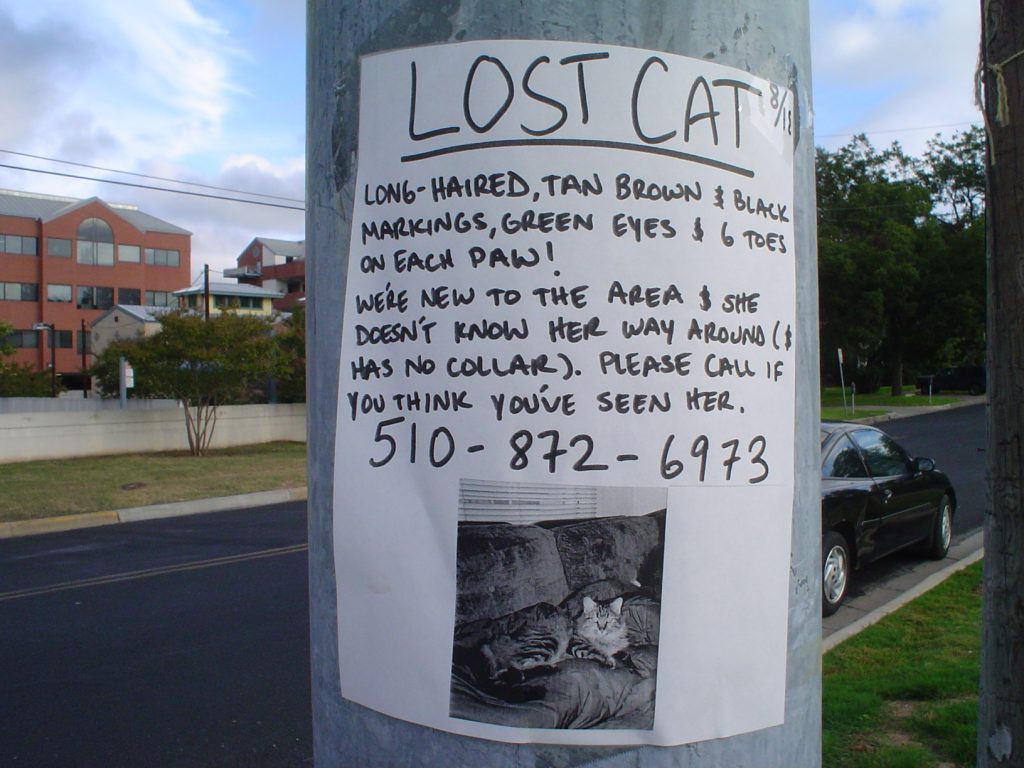 LOST CAT 8/18
LONG-HAIRED, TAN BROWN & BLACK
MARKINGS, GREEN EYES & 6 TOES
ON EACH PAW!
WE'RE NEW TO THE AREA & SHE
DOESN'T KNOW HER WAY AROUND (&
HAS NO COLLAR). PLEASE CALL IF
YOU THINK YOU'VE SEEN HER.
510-872-6973